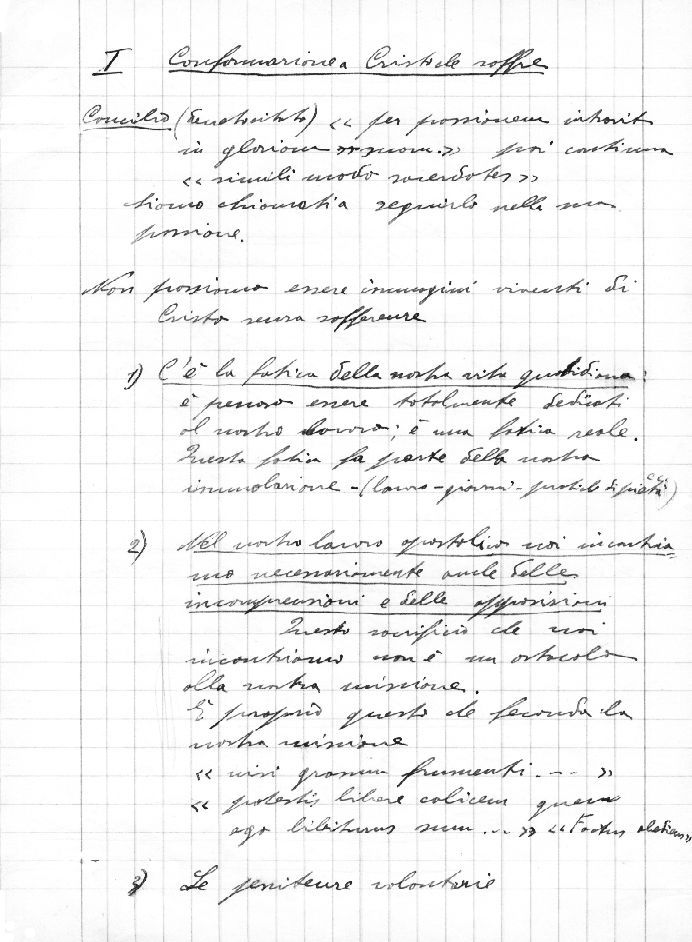 I Conformazione a Cristo che soffre
Concilio ( ) « per passionem intravit
in gloriam suam » poi continua
« simili modo sacerdotes »
siamo chiamati a seguirlo nella sua
passione.
Non possiamo essere immagini viventi di
Cristo senza sofferenze
1) C'è la fatica della nostra vita quotidiana:
è penoso essere totalmente dedicati
al nostro lavoro; è una fatica reale.
Questa fatica fa parte della nostra
immolazione - (lavoro - - pratiche di pietà)
2) Nel nostro lavoro apostolico noi incontria=
mo necessariamente anche delle
incomprensioni e delle opposizioni
Questo sacrificio che noi
incontriamo non è un ostacolo
alla nostra missione.
È proprio questo che feconda la
nostra missione
« nisi granum frumenti ... »
« potestis bibere calicem quem
ego bibiturus sum ... » « Factus obediens »
3) Le penitenze volontarie